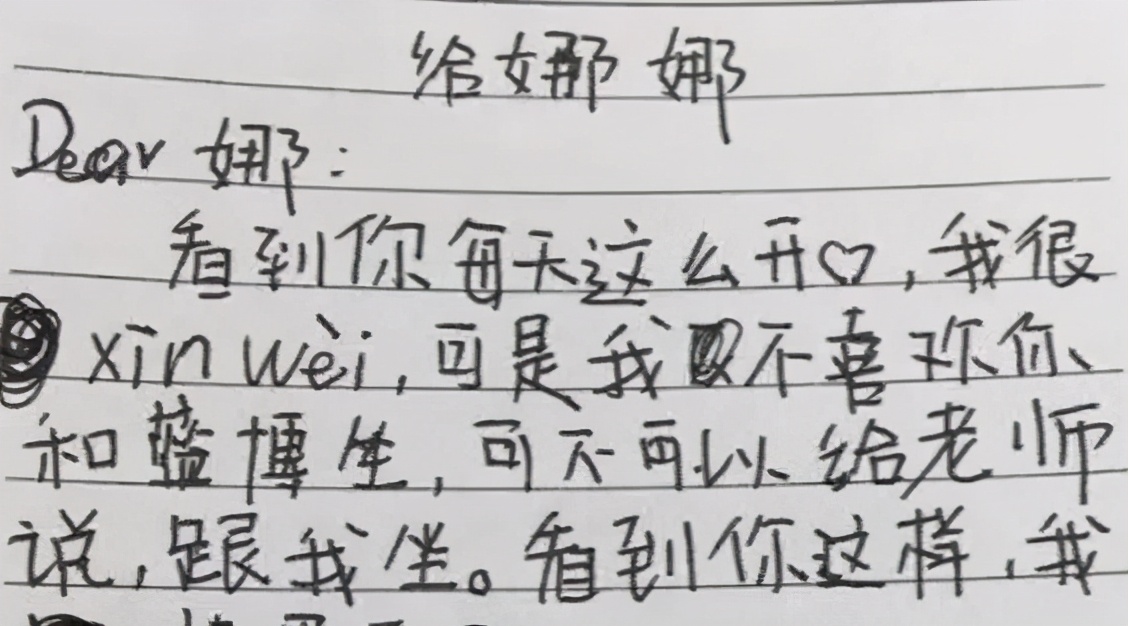 给娜娜
Dear 娜:
看到你每天这么开♡,我很
xīn wèi,可是我不喜欢你
和蓝博坐,可不可以给老师
说,跟我坐。看到你这样,我